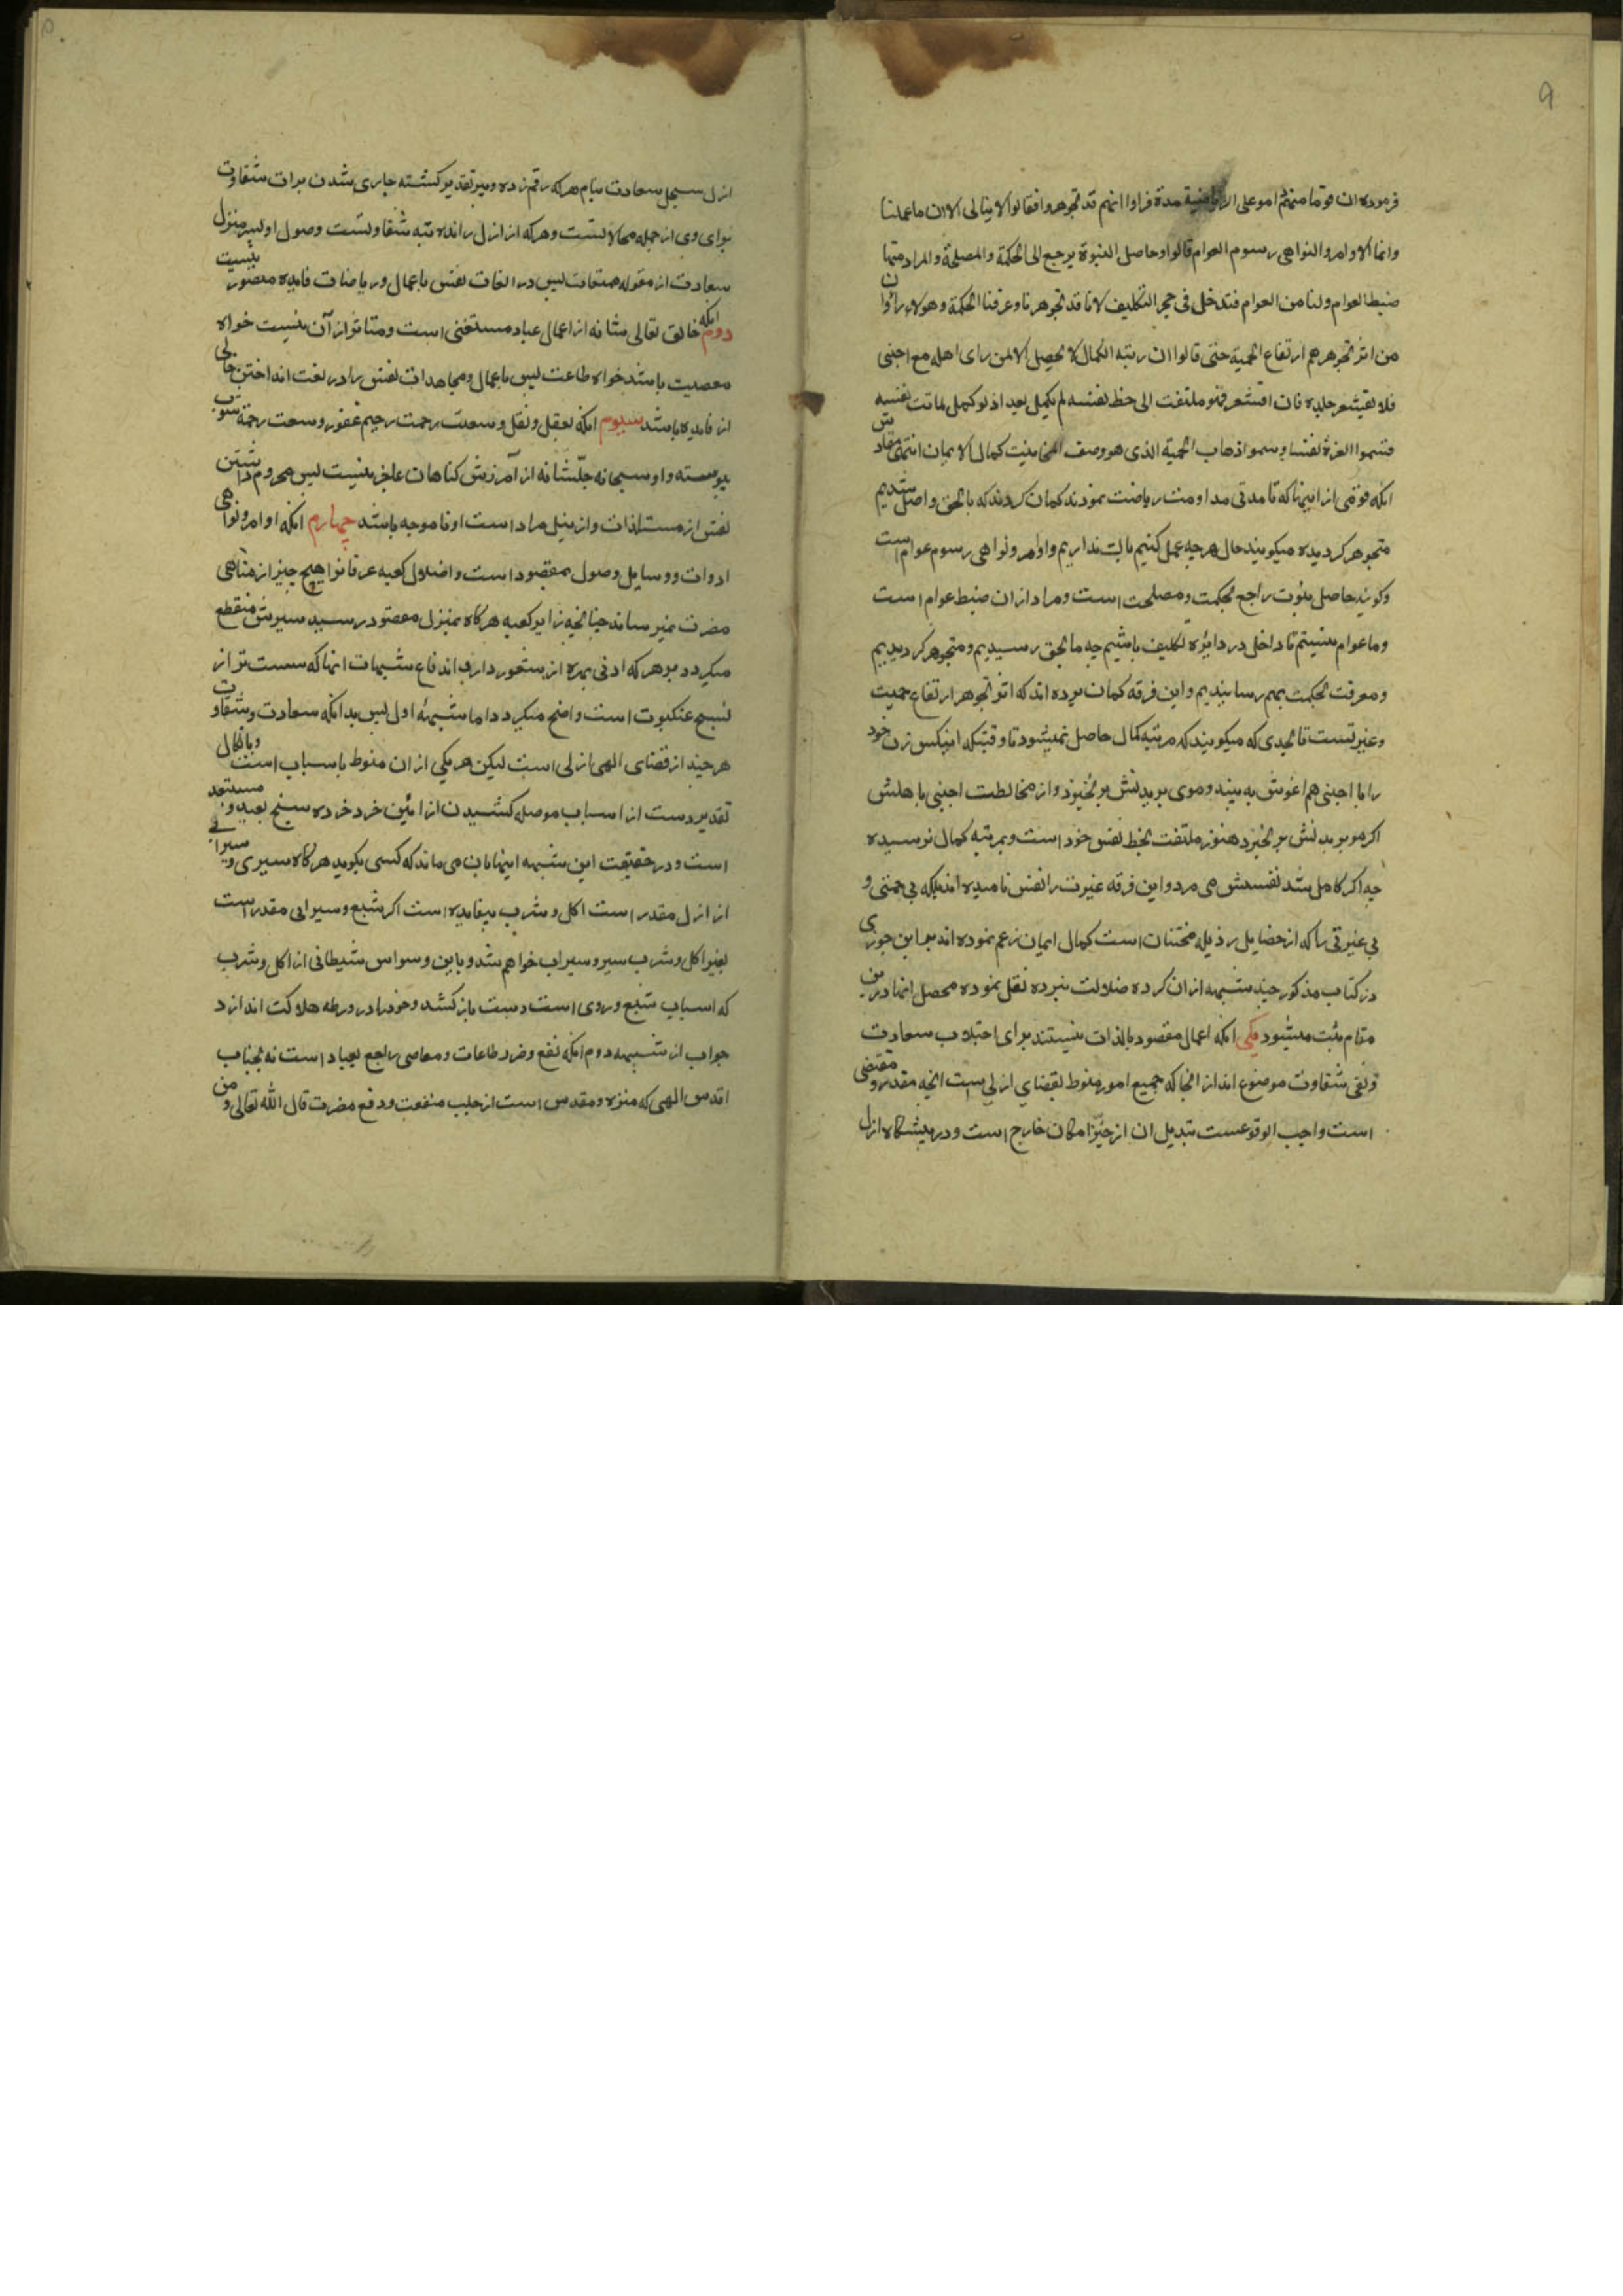 ۹
فرموده ان قوما منهم داموا على الریاضة مدة فراوا انهم قد تجوهروا فقالوا لا نبالی الان ما عملنا
وانما الاوامر والنواهی رسوم العوام قالوا وحاصل النبوة یرجع الی الحکمة والمصلحة والمراد منها
ضبط العوام ولسنا من العوام فندخل فی حجر التکلیف لانا قد تجوهرنا وعرفنا الحکمة وهولاء راوا ان
من اثر تجوهرهم ارتفاع الحمیة حتی قالوا ان رتبه الکمال لا یحصل الا لمن رای اهله مع اجنبی
فلا یقشعر جلده فان اقشعر فهو ملتفت الی حظ نفسه لم یکمل بعد اذ لو کمل لماتت نفسه
فسموا الغیرة نفسا وسموا ذهاب الحمیة الذی هو وصف المخانیث کمال الایمان انتهی مفادش
انکه قومی از اینها که تا مدتی مداومت ریاضت نمودند کمان کردند که بالحق واصل شدیم
متجوهر کردیده میکویند حال هر چه عمل کنیم باکت نداریم و اوامر و نواهی رسوم عوام است
وکویند حاصل نبوت راجع بحکمت و مصلحت است و مراد از ان ضبط عوام است
وما عوام نیستیم تا داخل در دایره تکلیف باشیم چه ما بحق رسیدیم و متجوهر کردیدیم
و معرفت بحکمت بهم رسانیدیم و این فرقه کمان برده اند که اثر تجوهر ارتفاع حمیت
و غیرتست تا بحدی که میکویند که مرتبه کمال حاصل نمیشود تا وقتیکه اینکس زن خود
را با اجنبی هم اغوش به بیند و موی بر بدنش بر نخیزد و از مخالطت اجنبی با هلش
اکر مو بر بدنش بر خیزد هنوز ملتفت بحظ نفس خود است و بمرتبه کمال نرسیده
چه اکر کامل شد نفسش می مرد و این فرقه غیرت را نفس نامیده اند بلکه بی حمیتی و
بی غیرتی را که از خصایل رذیله مخنثان است کمال ایمان زعم نموده اند بعد ابن جوزی
در کتاب مذکور چند شبهه از ان کرده ضلالت نبرده نقل نموده محصل انها درین
مقام ثبت میشود یکی انکه اعمال مقصود بالذات نیستند برای اجتلاب سعادت
و نفی شقاوت موضوع اند از انجا که جمیع امور منوط بقضای ازلی است انچه مقدر و مقتضی
است واجب الوقوعست تبدیل ان از حیّز امکان خارج است و در پیشکاه ازل
ازل سجل سعادت بنام هر که رقم زده دبیر تقدیر کشته جاری شدن برات شقاوت
برای وی از جمله محالاتست و هر که از ازل رانده تبه شقاوتست وصول او بسر منزل
سعادت از مقوله ممتنعات لیس در اتعاب نفس باعمال و ریاضات فایده متصور نیست
دوم انکه خالق تعالی شانه از اعمال عباد مستغنی است و متاثر از آن نیست خواه
معصیت باشد خواه طاعت پس باعمال و مجاهدات نفس را در تعب انداختن خالی
از فایده باشد سیوم انکه بعقل و نقل وسعت رحمت رحیم غفور وسعت رحمته بثبوت
پیوسته و او سبحانه جلّ شانه از آمرزش کناهان عاجز نیست پس محروم داشتن
نفس از مستلذات و از نیل مراد است او نا موجه باشد چهارم انکه اوامر و نواهی
ادوات و وسایل وصول بمقصود است و اضلال کعبه عرفانرا هیچ چیز از مناهی
مضرت نمیرساند چنانچه زایر کعبه هرکاه بمنزل مقصود رسید سیرش منقطع
میکردد بر هر که ادنی بهره از شعور دارد اندفاع شبهات انها که سست تر از
نسیج عنکبوت است واضح میکردد اما شبهه اول پس بدانکه سعادت و شقاوت
هر چند از قضای الهی ازلی است لیکن هر یکی از ان منوط باسباب است و باتکال
تقدیر دست از اسباب موصله کشیدن از ائین خرد خرده سنج بعید و مستبعد
است و در حقیقت این شبهه اینها بان می ماند که کسی بکوید هرکاه سیری و سیرابی
از ازل مقدر است اکل و شرب بیفایده است اکر شبع و سیرابی مقدر است
بغیر اکل و شرب سیر و سیراب خواهم شد و باین وسواس شیطانی از اکل و شرب
که اسباب شبع و روی است دست باز کشد و خود را در ورطه هلاکت اندازد
جواب از شبهه دوم انکه نفع و ضرر طاعات و معاصی راجع بعباد است نه بجناب
اقدس الهی که منزه و مقدس است از جلب منفعت و دفع مضرت قال الله تعالی ومن